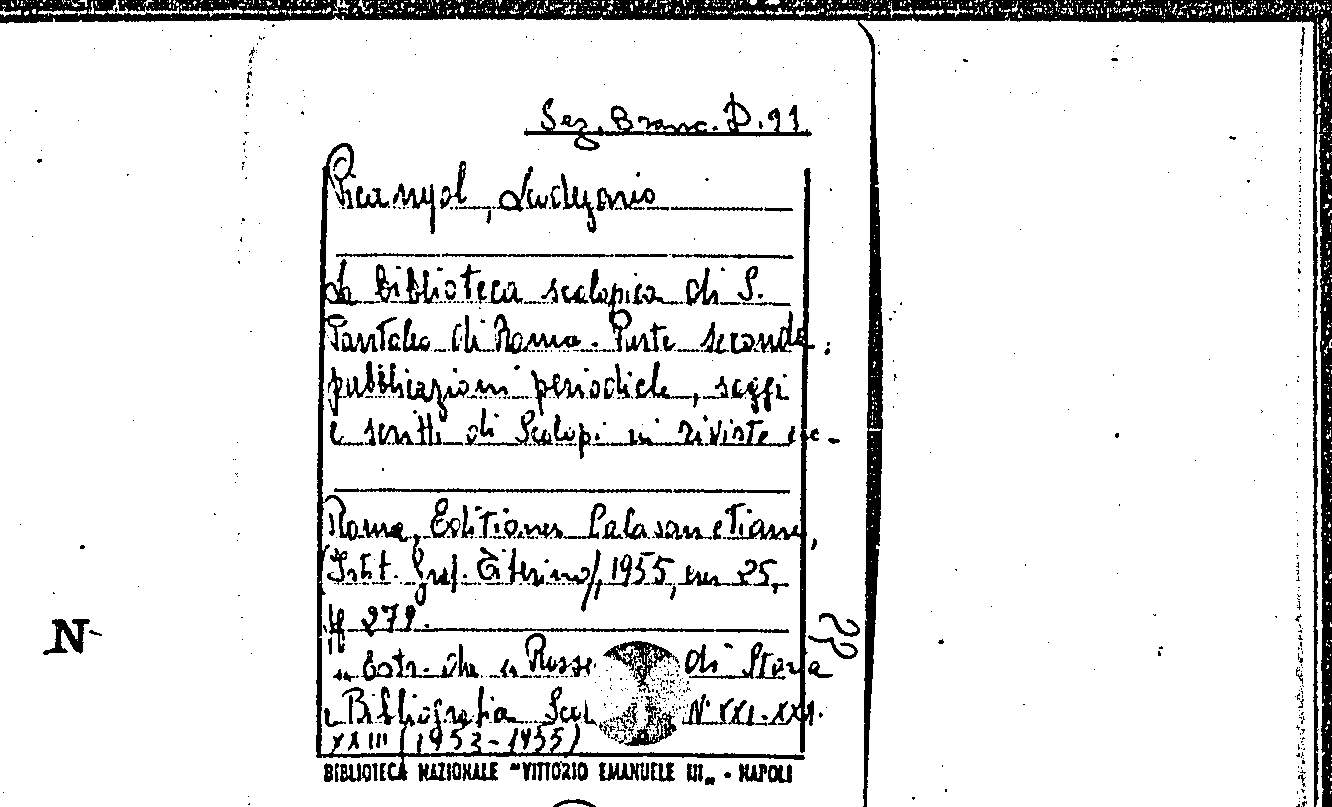 Sez. Branc. D. 11
Picanyol, Leodegario
La biblioteca scolopica di S.
Pantaleo di Roma. Parte seconda:
pubblicazioni periodiche, saggi
e scritti di Scolopi in riviste ecc.
Roma, Editiones Calasanctianae,
(Istit. Graf. Tiberino), 1955, cm 25,
ff 279.
Estr. da "Rasse di Storia
e Bibliografia Scol N° XXI-XXII.
XXIII (1953-1955)
22
N
BIBLIOTECA NAZIONALE "VITTORIO EMANUELE III„ - NAPOLI